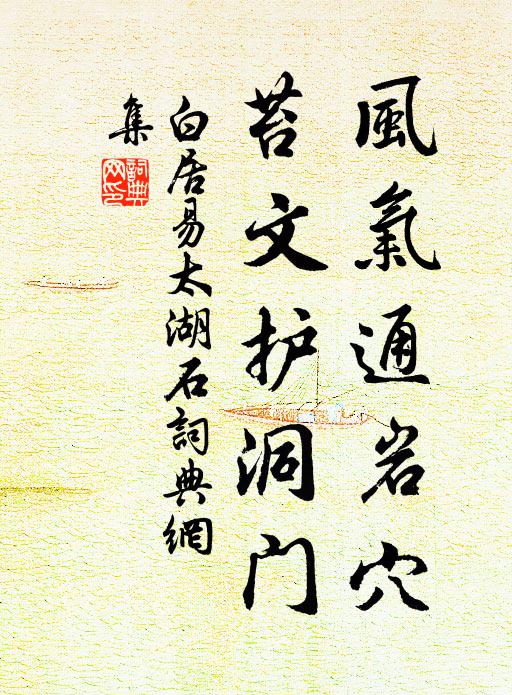 風氣通岩穴
苔文护洞门
白居易太湖石詞典網
集
詞典
网印